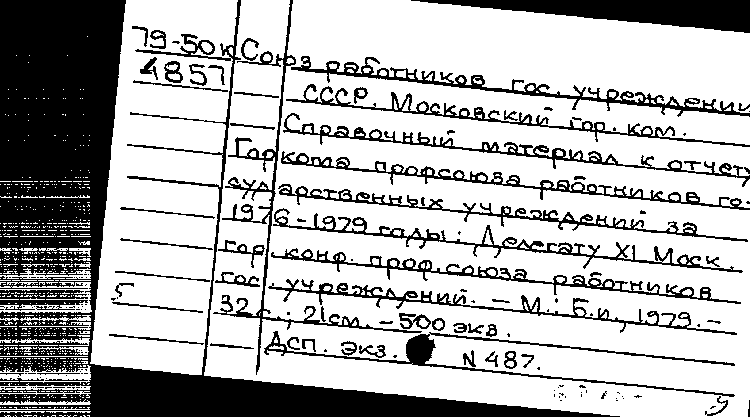 79-50к Союз работников гос. учреждений
4857 СССР. Московский гор. ком.
Справочный материал к отчету
Горкома профсоюза работников го-
сударственных учреждений за
1976-1979 годы: Делегату XI Моск.
гор. конф. проф.союза работников
гос. учреждений. – М.: Б.и., 1979. –
5 32с.; 21см. – 500 экз.
Дсп. экз. N 487.
у